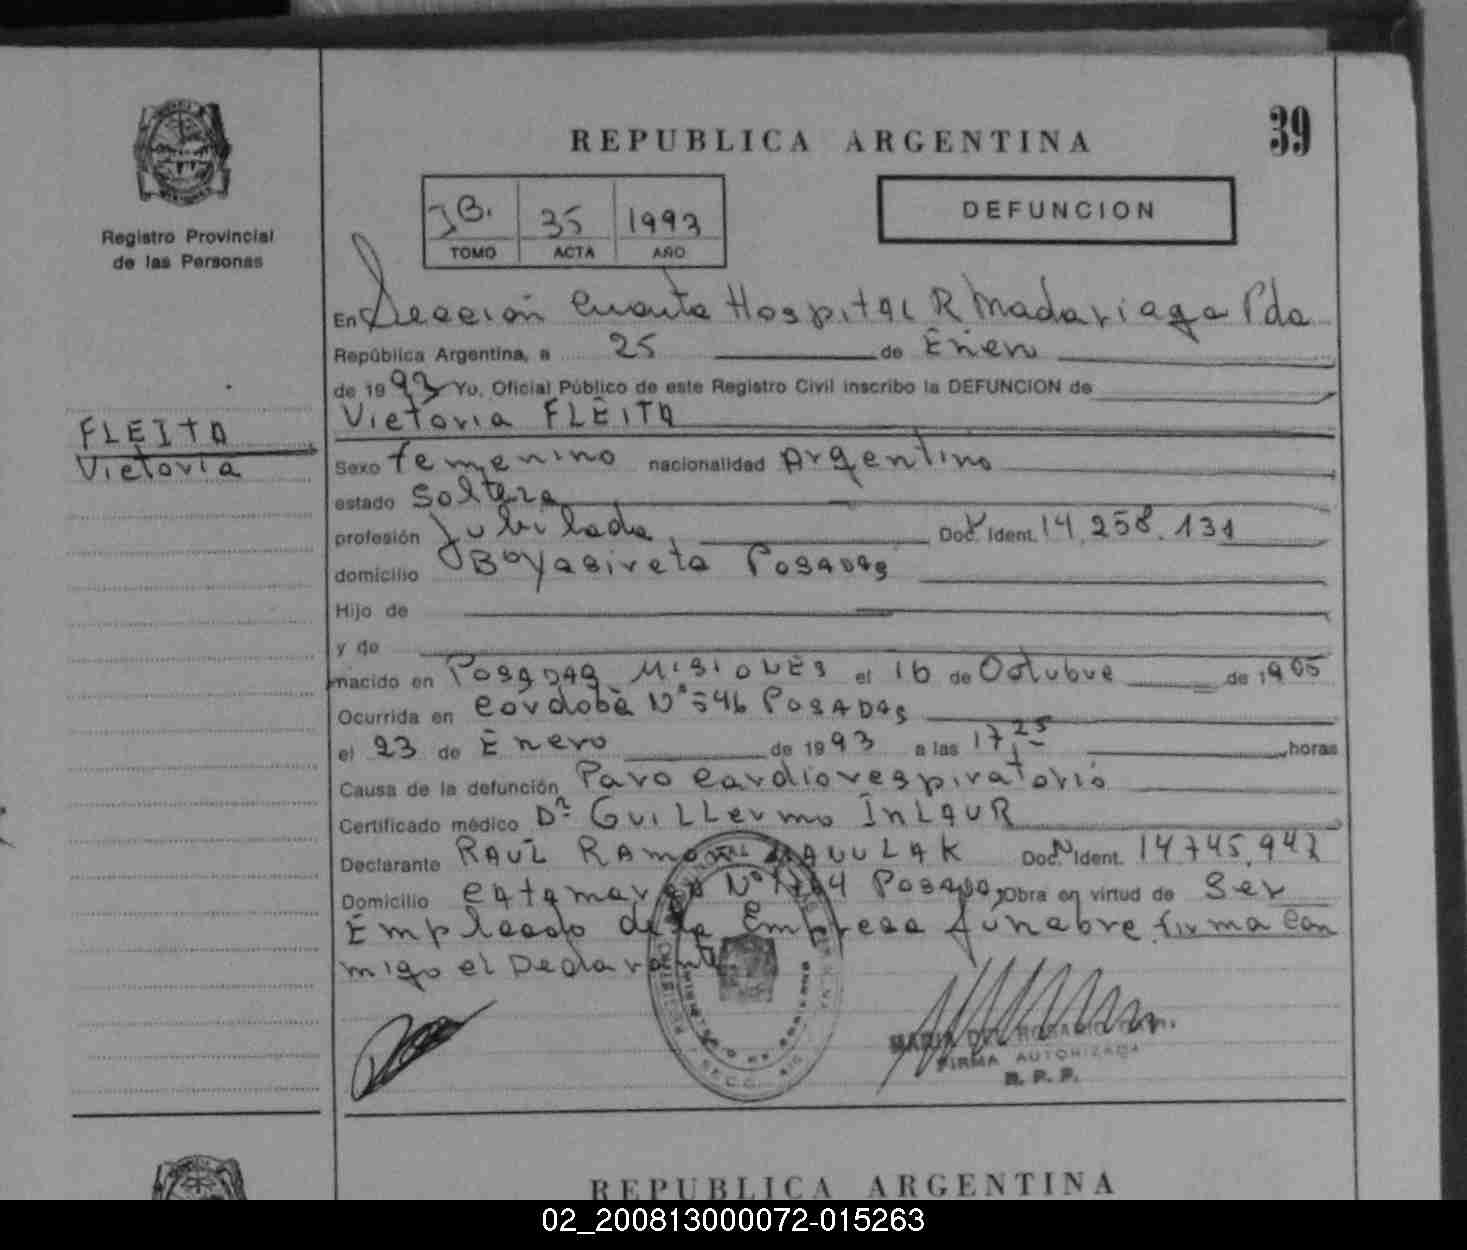 39
REPUBLICA ARGENTINA
Registro Provincial
de las Personas
JB. 35 1993
TOMO ACTA AÑO
DEFUNCION
En Sección Cuarta Hospital R Madariaga Pda
República Argentina, a 25 de Enero
de 1993 Yo, Oficial Público de este Registro Civil inscribo la DEFUNCION de
Victoria FLEITA
FLEITA
Victoria
Sexo femenino nacionalidad Argentino
estado Soltera
profesión Jubilada Doc. Ident. 14.258.131
domicilio Boyasireta POSADAS
Hijo de
y de
nacido en POSADAS MISIONES el 16 de Octubre de 1905
Ocurrida en Cordoba Nº 546 POSADAS
el 23 de Enero de 1993 a las 17,25 horas
Causa de la defunción Paro Cardiorespiratorio
Certificado médico Dr. GuiLLermo
Declarante RAUL RAMON Doc. Ident. 14.745.942
Domicilio Catamarca Nº Posadas Obra en virtud de Ser
Empleado de la Empresa fúnebre firma Con
migo el Declarante
MARIA DEL ROSARIO
FIRMA AUTORIZADA
R. P. P.
REPUBLICA ARGENTINA
02_200813000072-015263